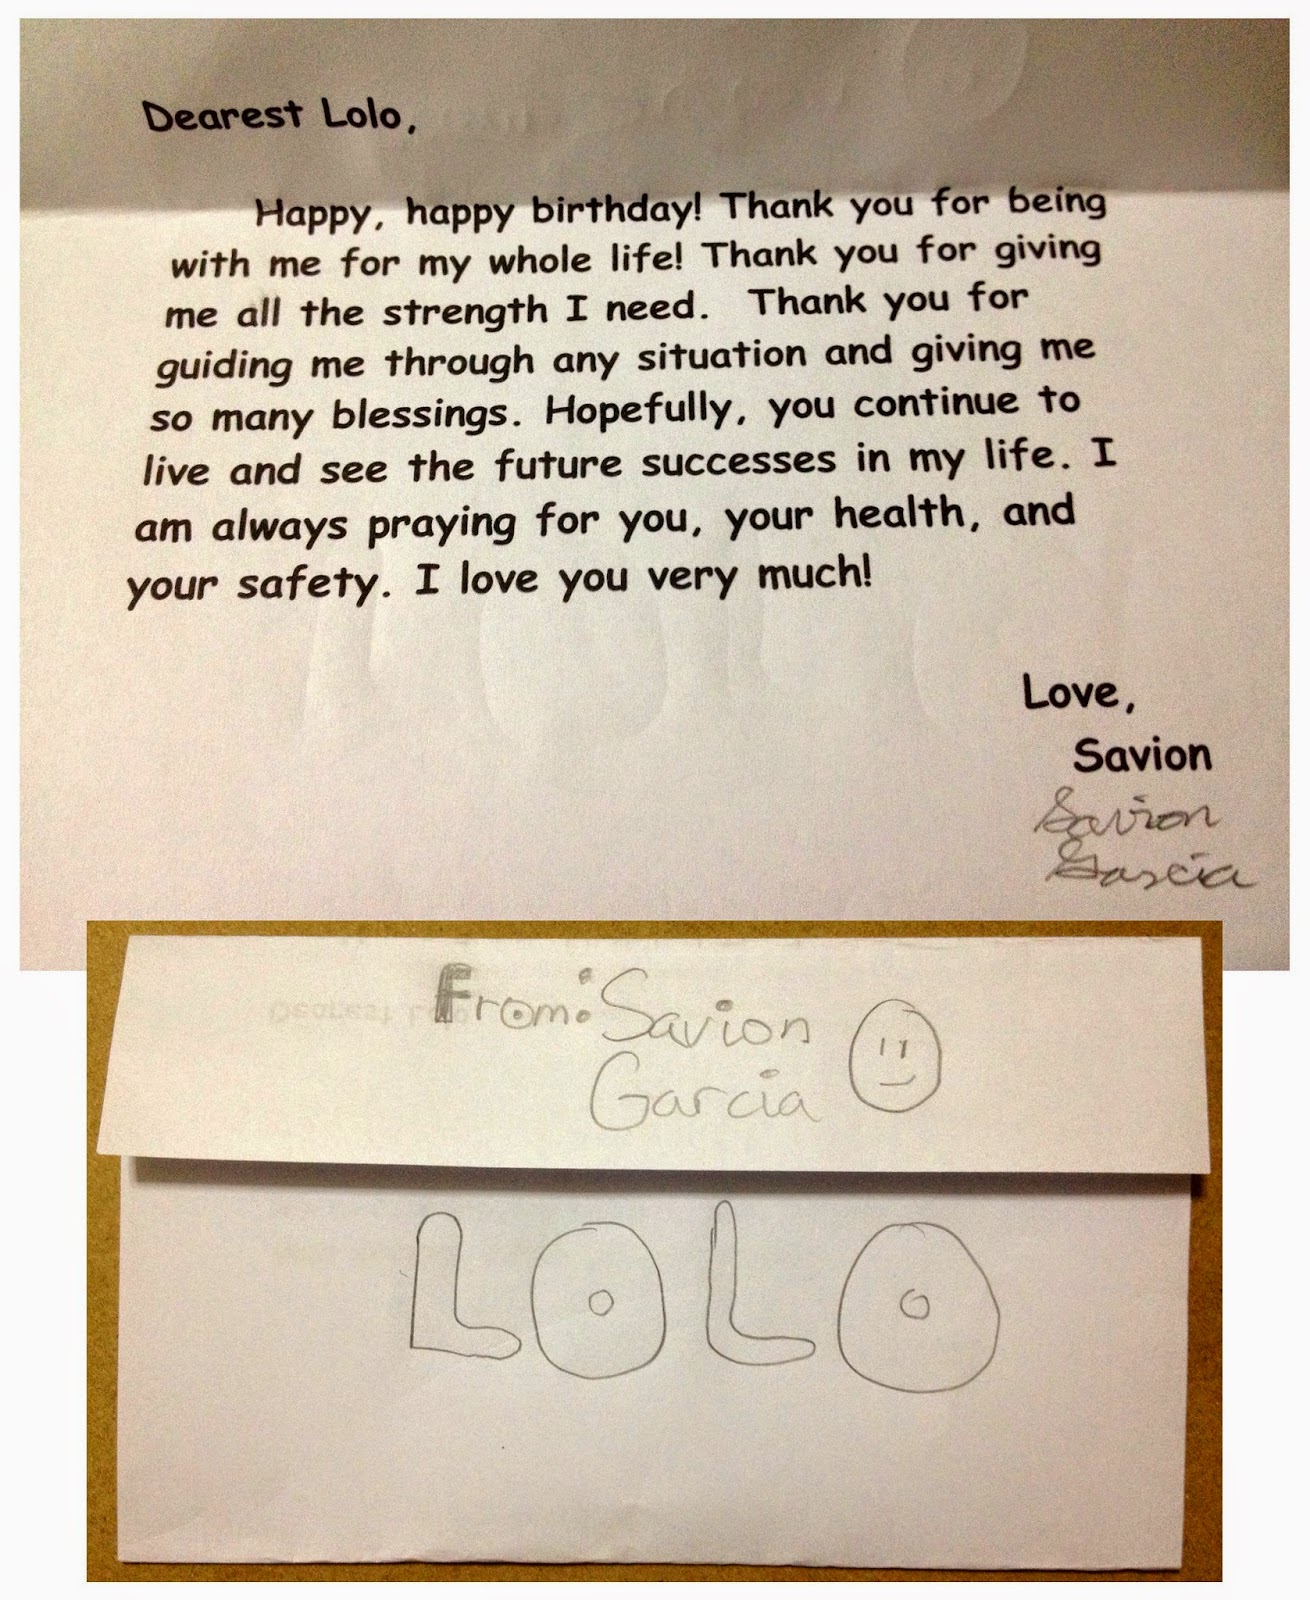 Dearest Lolo,
Happy, happy birthday! Thank you for being
with me for my whole life! Thank you for giving
me all the strength I need. Thank you for
guiding me through any situation and giving me
so many blessings. Hopefully, you continue to
live and see the future successes in my life. I
am always praying for you, your health, and
your safety. I love you very much!
Love,
Savion
Savion
Garcia
From: Savion
Garcia
LOLO